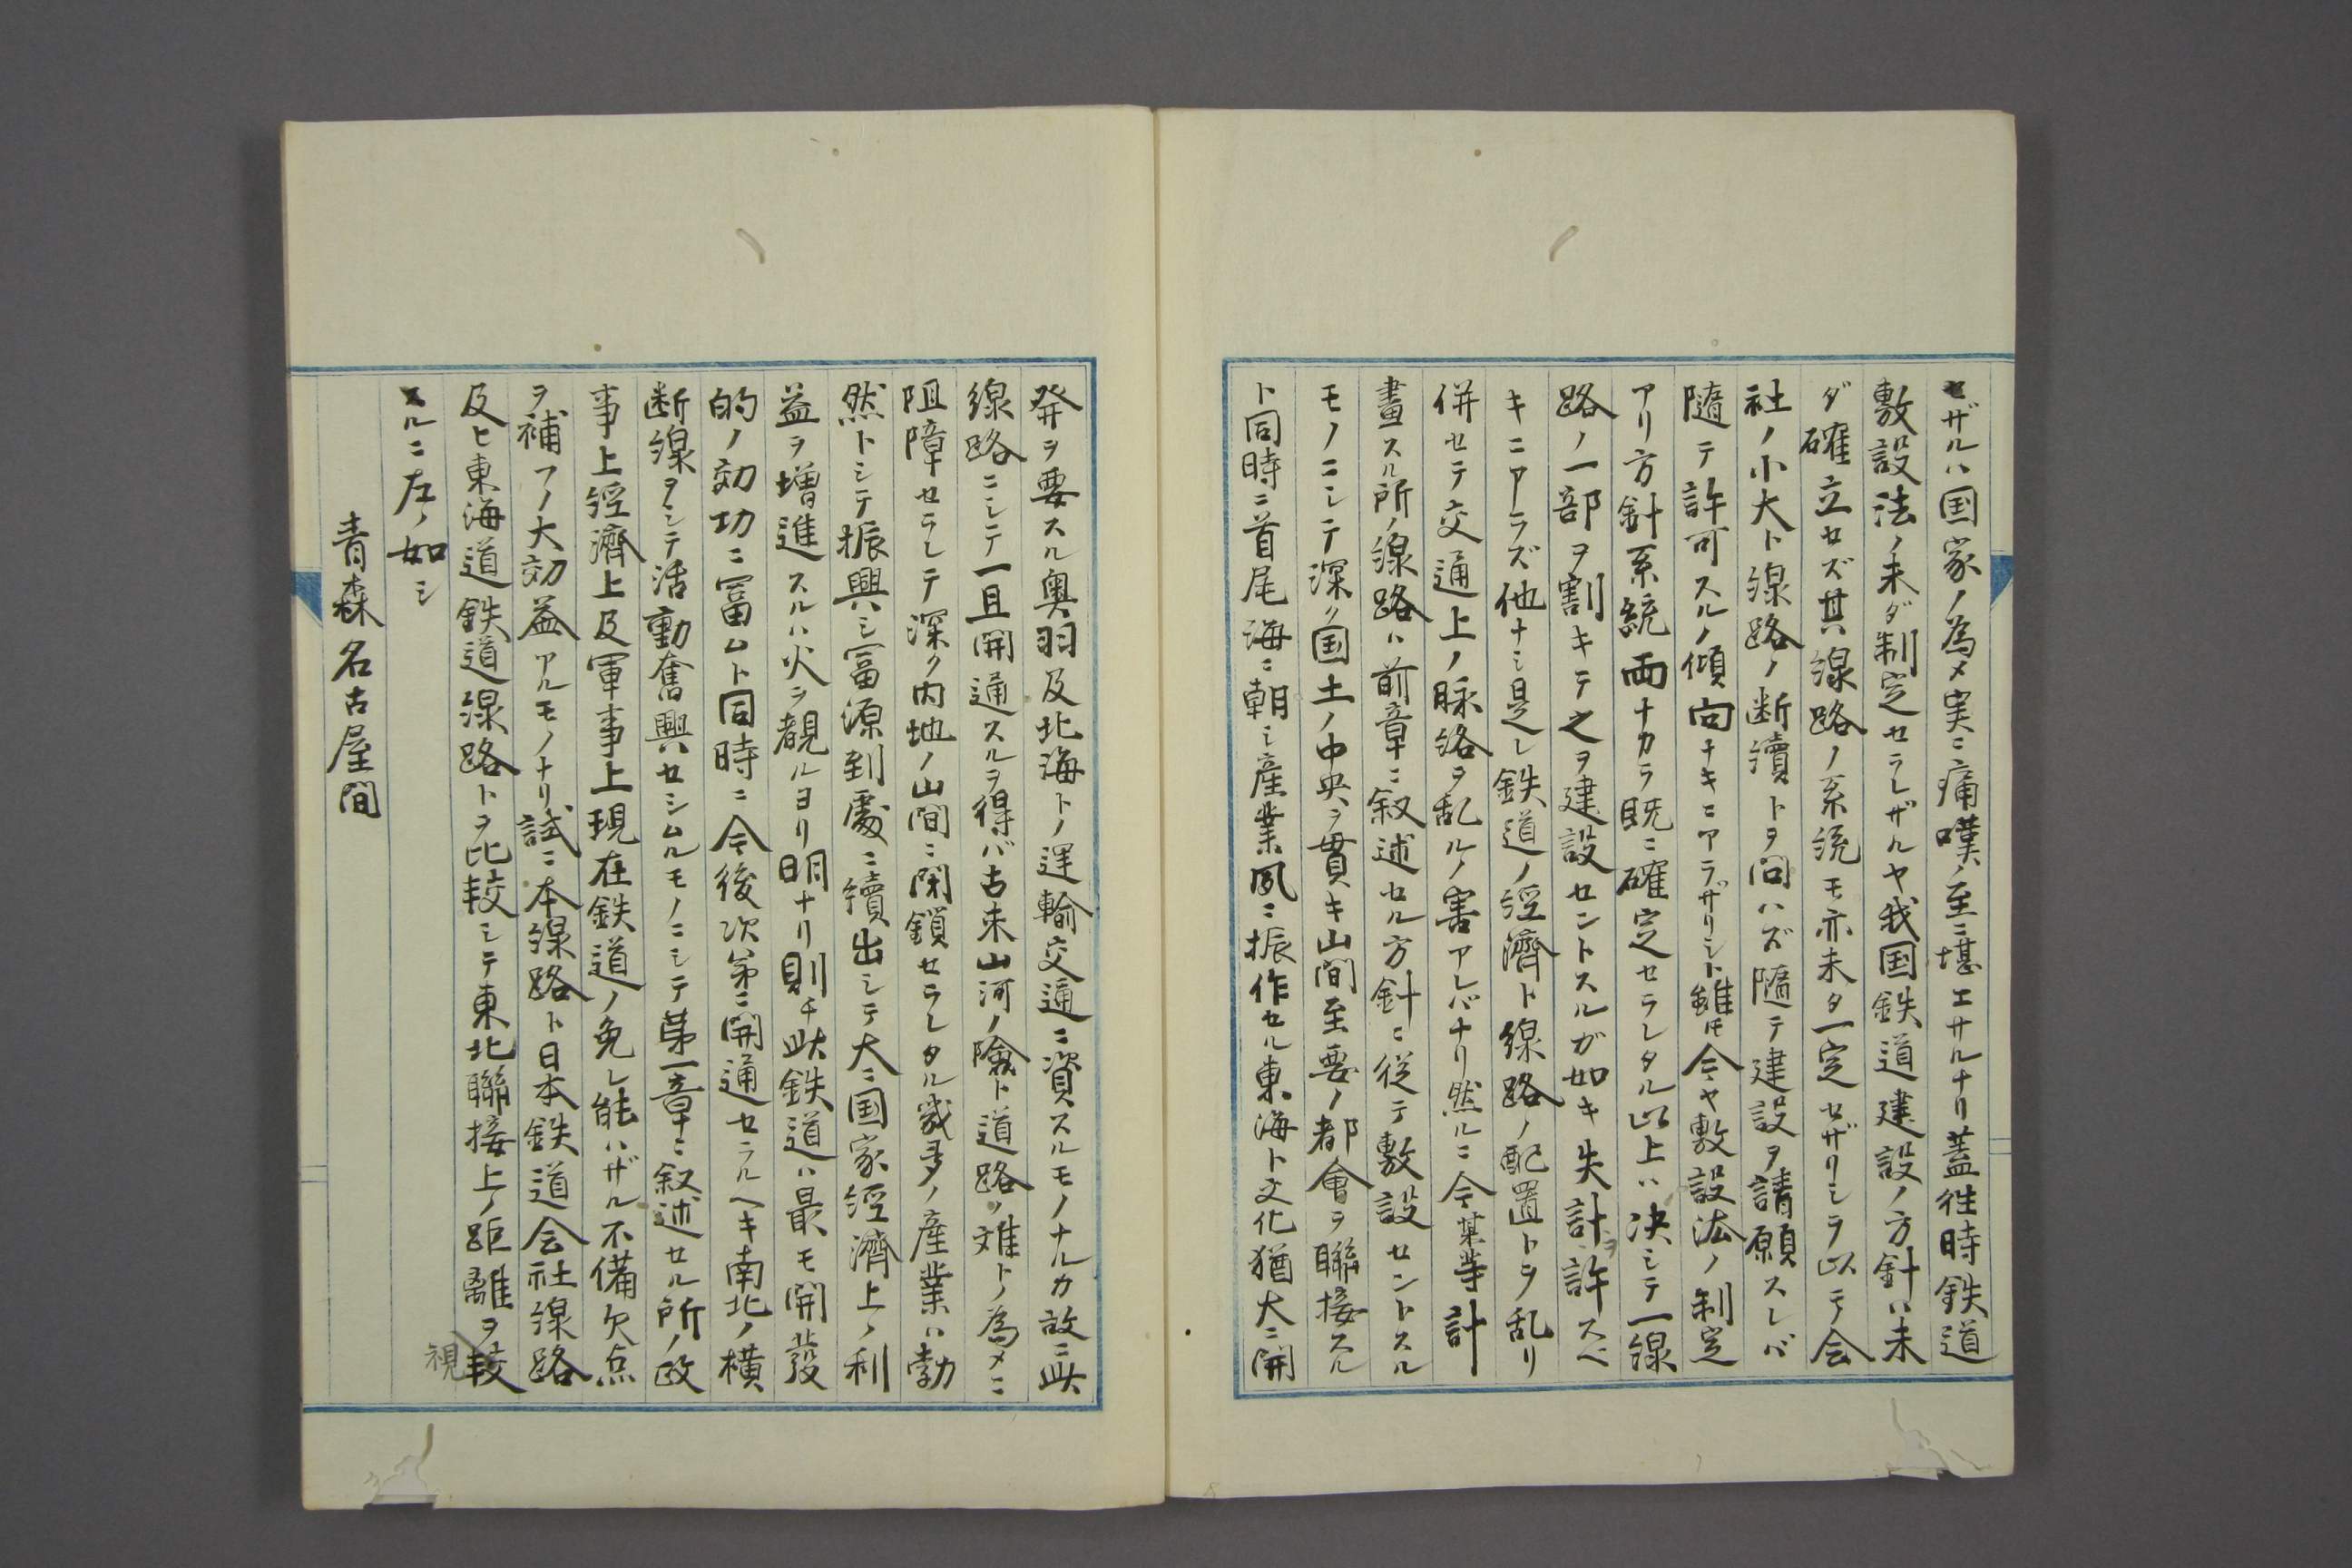 セザルハ国家ノ為メ実ニ痛嘆ノ至ニ堪エサルナリ蓋往時鉄道
敷設法ノ未ダ制定セラレザルヤ我国鉄道建設ノ方針ハ未
ダ確立セズ其線路ノ系統モ亦未タ一定セザリシヲ以テ会
社ノ小大ト線路ノ断續トヲ问ハズ隨テ建設ヲ請願スレバ
隨テ許可スルノ傾向ナキニアラザリシト雖𪜈今ヤ敷設法ノ制定
アリ方針系統両ナカラ既ニ確定セラレタル以上ハ决シテ一線
路ノ一部ヲ割キテ之ヲ建設セントスルガ如キ失計ヲ許スベ
キニアラズ他ナシ是レ鉄道ノ経濟ト線路ノ配置トヲ乱リ
併セテ交通上ノ脉絡ヲ乱ルノ害アレバナリ然ルニ今某等計
畫スル所ノ線路ハ前章ニ叙述セル方針ニ従テ敷設セントスル
モノニシテ深ク国土ノ中央ヲ貫キ山间至要ノ都會ヲ聯接スル
ト同時ニ首尾海ニ朝シ産業夙ニ振作セル東海ト文化猶大ニ開
発ヲ要スル奥羽及北海トノ運輸交通ニ資スルモノナルカ故ニ此
線路ニシテ一旦開通スルヲ得バ古来山河ノ險ト道路ノ难トノ為メニ
阻障セラレテ深ク内地ノ山间ニ閉鎖セラレタル幾多ノ産業ハ勃
然トシテ振興シ冨源到處ニ續出シテ大ニ国家経濟上ノ利
益ヲ増進スルハ火ヲ覩ルヨリ明ナリ則チ此鉄道ハ最モ開發
的ノ効功ニ冨ムト同時ニ今後次第ニ開通セラルヘキ南北ノ横
断線ヲシテ活動奮興セシムルモノニシテ第一章ニ叙述セル所ノ政
事上経濟上及軍事上現在鉄道ノ免レ能ハザル不備欠点
ヲ補フノ大効益アルモノナリ試ニ本線路ト日本鉄道会社線路
及ヒ東海道鉄道線路トヲ比較シテ東北聯接上ノ距離ヲ較
視
スルニ左ノ如シ
青森名古屋间